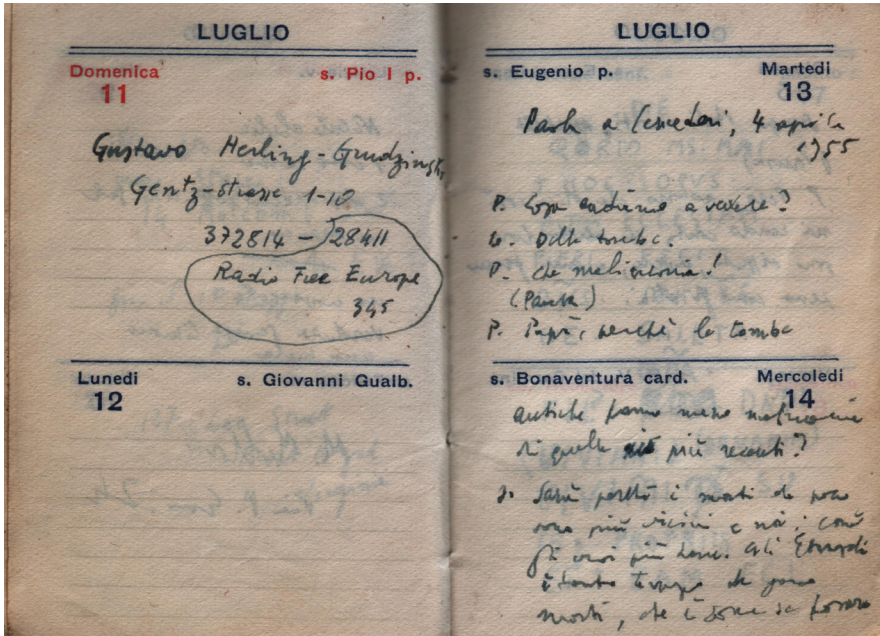 LUGLIO
Domenica s. Pio I p.
11
Gustavo Herling-Grudzinski
Gentz-strasse 1-10
372814 - 28411
Radio Free Europe
345
Lunedi s. Giovanni Gualb.
12
LUGLIO
s. Eugenio p. Martedi
13
Paola a Cerveteri, 4 aprile
1955
P. Cosa andiamo a vedere?
G. Delle tombe.
P. Che malinconia!
(Pausa)
P. Papà, perchè le tombe
s. Bonaventura card. Mercoledi
14
antiche fanno meno malinconia
di quelle più recenti?
Sarà perchè i morti da poco
sono più vicini a noi, così
gli vuoi più bene. Gli Etruschi
è tanto tempo che sono
morti, che è come se fossero